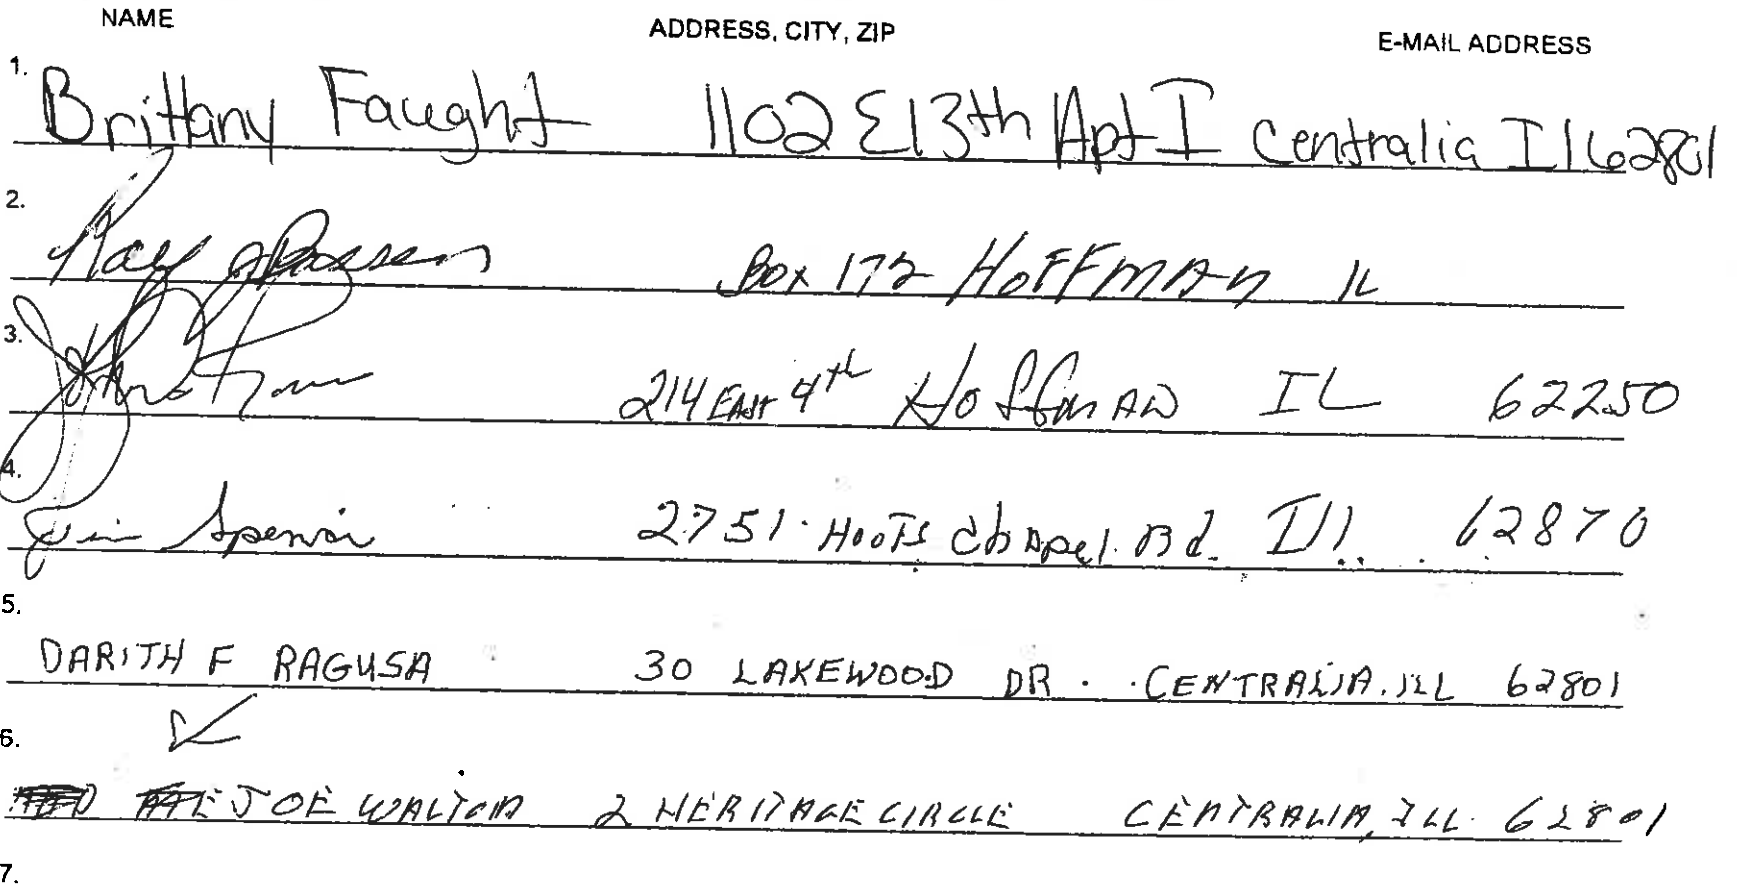 NAME ADDRESS, CITY, ZIP E-MAIL ADDRESS
1. Brittany Faught 1102 E 13th Apt I Centralia Il 62801
2. Ray Box 172 HOFFMAN IL
3. John 214 EAST 4th Hoffman IL 62250
4. Jim 2751 Hoots Chapel Rd. Ill. 62870
5. DARITH F RAGUSA 30 LAKEWOOD DR. CENTRALIA. ILL 62801
6. JOE WALTON 2 HERITAGE CIRCLE CENTRALIA, ILL. 62801
7.